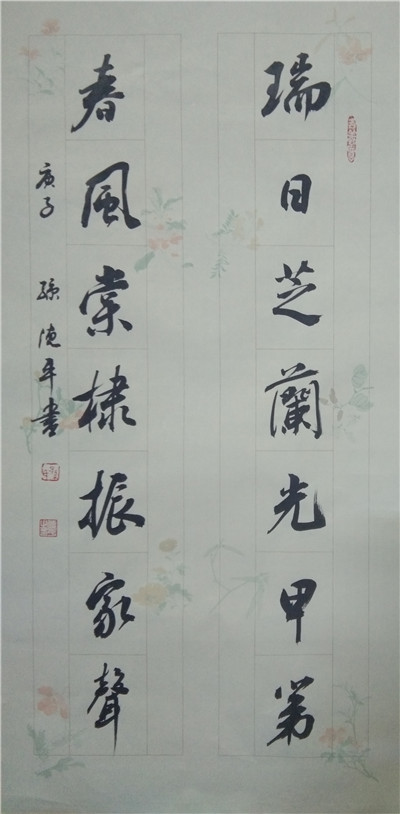 瑞日芝蘭光甲第
春風棠棣振家聲
庚子 孫德平書